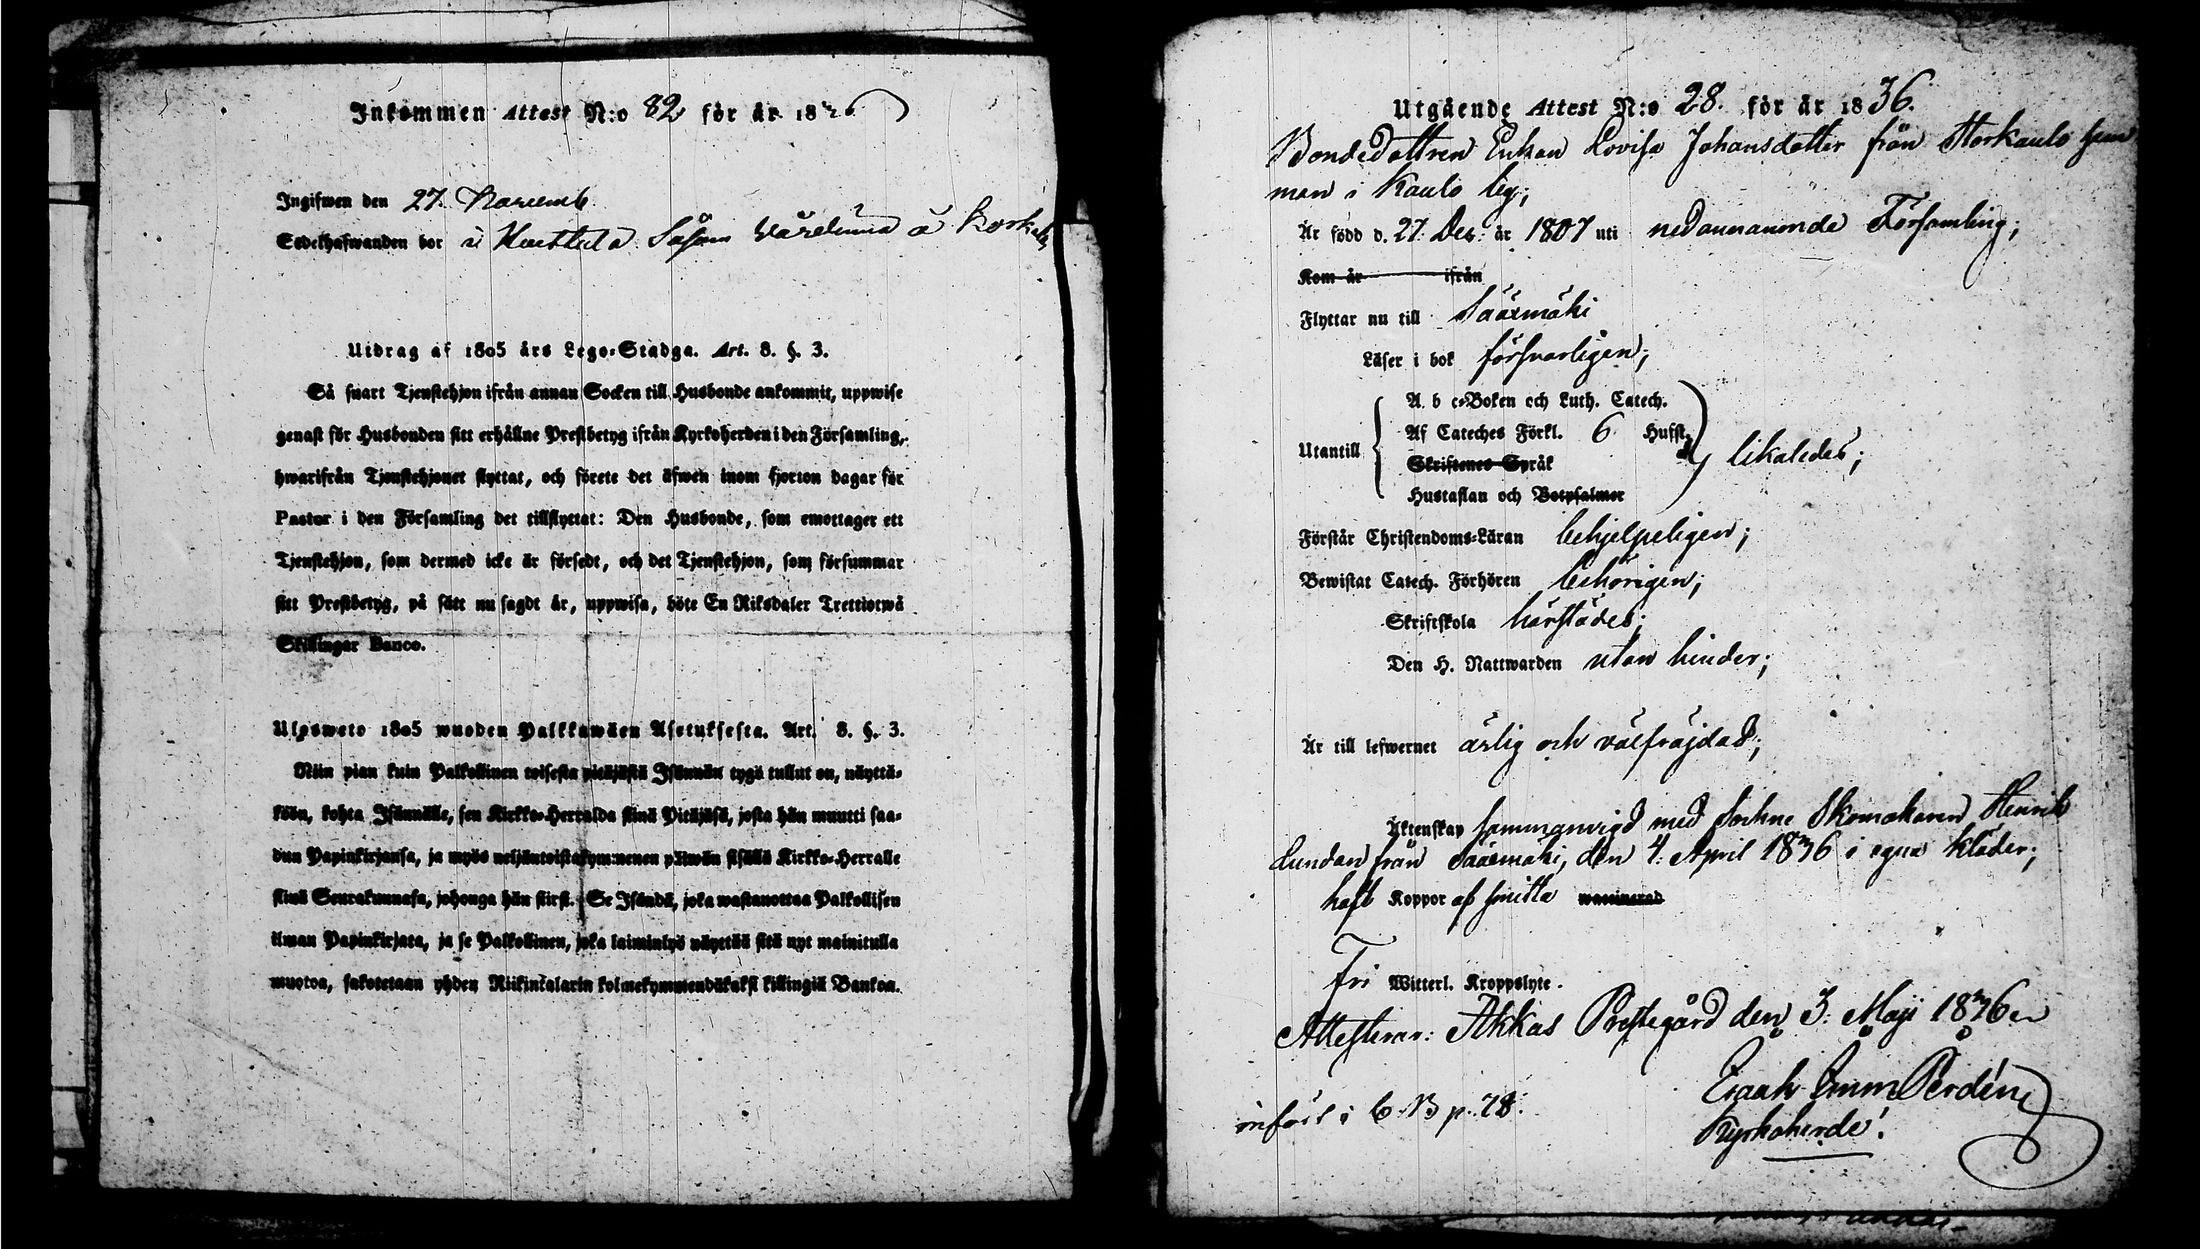 Inkommen Attest N:o 82 för år 1836
Ingifwen den 27. Novemb.
Sedelhafwanden bor i Huittula Såsom värdinna å
Utdrag af 1805 års Lego-Stadga. Art. 8. §. 3.
Så snart Tjenstehjon ifrån annan Socken till Husbonde ankommit, uppwise
genast för Husbonden sitt erhållne Prestbetyg ifrån Kyrkoherden i den Församling,
hwarifrån Tjenstehjonet flyttat, och förete det äfwen inom fjorton dagar för
Pastor i den Församling det tillflyttat: Den Husbonde, som emottager ett
Tjenstehjon, som dermed icke är försedt, och det Tjenstehjon, som försummar
sitt Prestbetyg, på sätt nu sagdt är, uppwisa, böte En Riksdaler Trettiotwå
Skillingar Banco.
Ulosweto 1805 wuoden Palkkawäen Asetuksesta. Art. 8. §. 3.
Niin pian kuin Palkollinen toisesta pitäjästä Isännän tygö tullut on, näyttä-
köön, kohta Isännälle, sen Kirkko-Herralda siinä Pitäjäsä, josta hän muutti saa-
dun Papinkirjansa, ja myös neljäntoistakymmenen päiwän sisällä Kirkko-Herralle
siinä Seurakunnasa, johonga hän siirsi. Se Isändä, joka wastanottaa Palkollisen
ilman Papinkirjata, ja se Palkollinen, joka laiminlyö näyttää sitä nyt mainitulla
muotoa, sakotetaan yhden Riikintalarin kolmekymmendäkaksi killingiä Bankoa.
Utgående Attest N:o 28. för år 1836.
Bondedottren Enkan Lovisa Johansdotter från Storkaulo hem
man i Kaulo by;
Är född d. 27. Dec. år 1807 uti nedannämnde Församling;
Kom år ifrån
Flyttar nu till Sääxmäki
Läser i bok försvarligen;
A b c-Boken och Luth. Catech.
Af Cateches Förkl. 6 Hufst.
Utantill likaledes;
Skriftenes Språk
Hustaflan och Botpsalmer
Förstår Christendoms-Läran behjelpeligen;
Bewistat Catech. Förhören behörigen;
Skriftskola härstädes;
Den H. Nattwarden utan hinder;
Är till lefwernet ärlig och välfräjdad;
Äktenskap sammanvigd med Sockne Skomakaren Henrik
Lundan från Sääxmäki, den 4. April 1836 i egna kläder;
haft Koppor af smitta waccinerad
Fri Witterl. Kroppslyte.
Attesterar: Akkas Prestegård den 3. Maji 1836
Kyrkoherde.
införd i C. B p. 78.